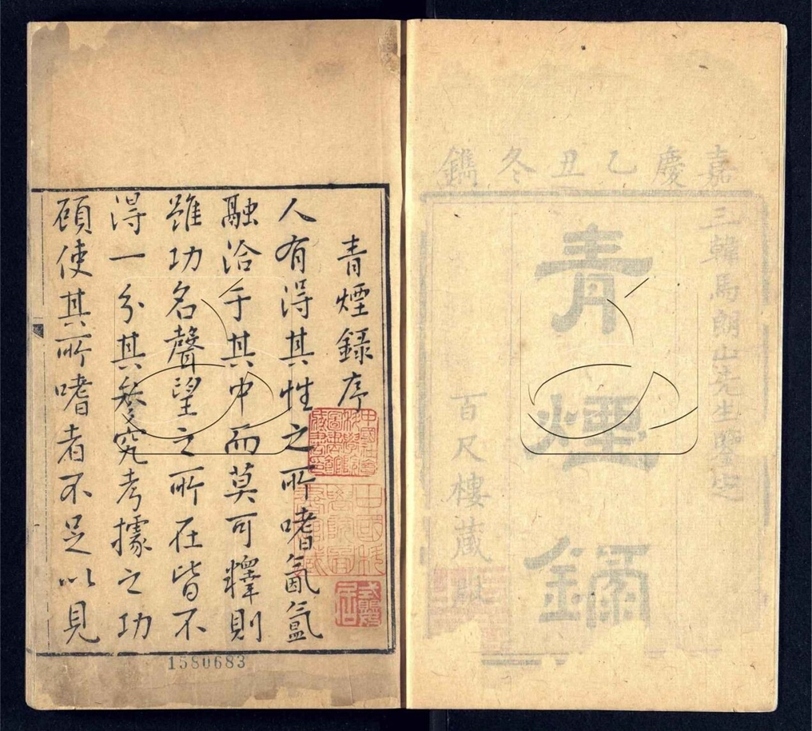 嘉慶乙丑冬鐫
三韓馬朗山先生鑒定
青煙錄
百尺樓藏
青煙錄序
人有得其性之所嗜氤氳
融洽于其中而莫可釋則
雖功名聲望之所在皆不
得一分其參究考據之功
顧使其所嗜者不足以見
1580683